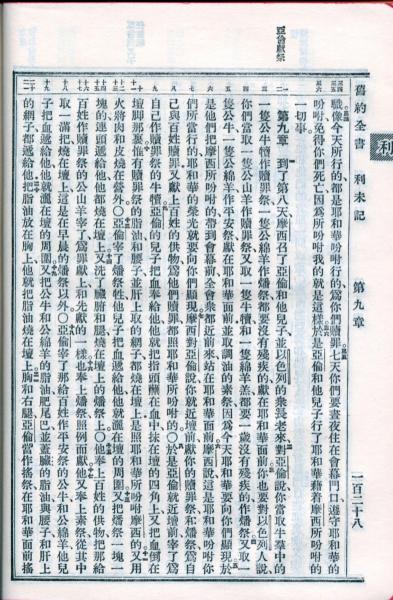 舊約全書 利未記 第九章 一百二十八
利
亞倫獻祭
職像今天所行的都是耶和華吩咐行的爲你們贖罪七天你們要晝夜住在會幕門口遵守耶和華的
吩咐免得你們死亡因爲所吩咐我的就是這樣於是亞倫和他兒子行了耶和華藉着摩西所吩咐的
一切事
第九章 到了第八天摩西召了亞倫和他兒子並以色列的衆長老來對亞倫說你當取牛羣中的
一隻公牛犢作贖罪祭一隻公綿羊作燔祭都要沒有殘疾的獻在耶和華面前你也要對以色列人說
你們當取一隻公山羊作贖罪祭又取一隻牛犢和一隻綿羊羔都要一歲沒有殘疾的作燔祭又取一
隻公牛一隻公綿羊作平安祭獻在耶和華面前並取調油的素祭因爲今天耶和華要向你們顯現於
是他們把摩西所吩咐的帶到會幕前全會衆都近前來站在耶和華面前摩西說這是耶和華吩咐你
們所當行的耶和華的榮光就要向你們顯現摩西對亞倫說你就近壇前獻你的贖罪祭和燔祭爲自
己與百姓贖罪又獻上百姓的供物爲他們贖罪都照耶和華所吩咐的○於是亞倫就近壇前宰了爲
自己作贖罪祭的牛犢亞倫的兒子把血奉給他他就把指頭蘸在血中抹在壇的四角上又把血倒在
壇脚那裏惟有贖罪祭的脂油和腰子並肝上取的網子都燒在壇上是照耶和華所吩咐摩西的又用
火將肉和皮燒在營外○亞倫宰了燔祭牲他兒子把血遞給他他就灑在壇的周圍又把燔祭一塊一
塊的連頭遞給他他都燒在壇上又洗了臟腑和腿燒在壇上的燔祭上○他奉上百姓的供物把那給
百姓作贖罪祭的公山羊宰了爲罪獻上和先獻的一樣也奉上燔祭照例而獻又奉上素祭從其中
取一滿把燒在壇上這是在早晨的燔祭以外○亞倫宰了那給百姓作平安祭的公牛和公綿羊他兒
子把血遞給他他就灑在壇的周圍又把公牛和公綿羊的脂油肥尾巴並蓋臟的脂油與腰子和肝上
的網子都遞給他把脂油放在胸上他就把脂油燒在壇上胸和右腿亞倫當作搖祭在耶和華面前搖